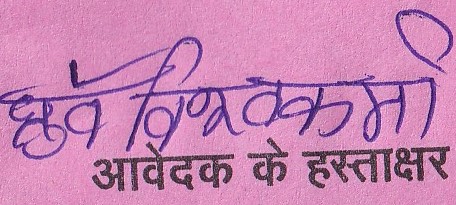 ध्रुव विश्वकर्मा
आवेदक के हस्ताक्षर